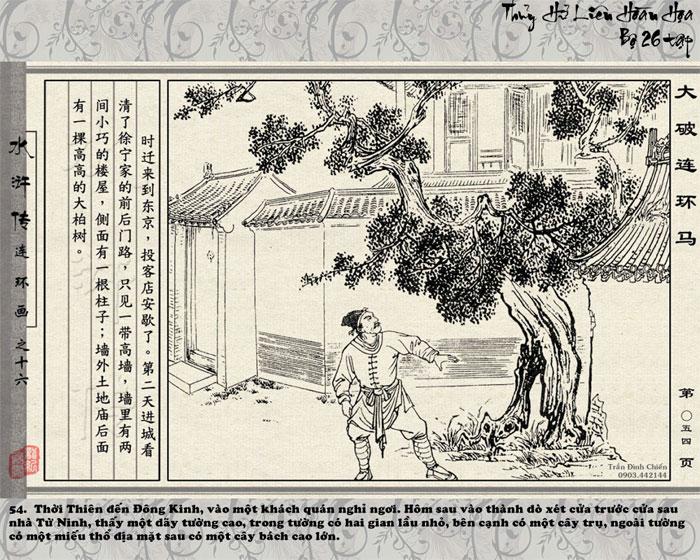 Thủy Hử Liên Hoàn Họa
Bộ 26 tập
大破连环马
水浒传连环画之十六
时迁来到东京，投客店安歇了。第二天进城看
清了徐宁家的前后门路，只见一带高墙，墙里有两
间小巧的楼屋，侧面有一根柱子；墙外土地庙后面
有一棵高高的大柏树。
第〇五四页
Trần Đình Chiến
0903.442144
54. Thời Thiên đến Đông Kinh, vào một khách quán nghỉ ngơi. Hôm sau vào thành dò xét cửa trước cửa sau
nhà Từ Ninh, thấy một dãy tường cao, trong tường có hai gian lầu nhỏ, bên cạnh có một cây trụ, ngoài tường
có một miếu thổ địa mặt sau có một cây bách cao lớn.